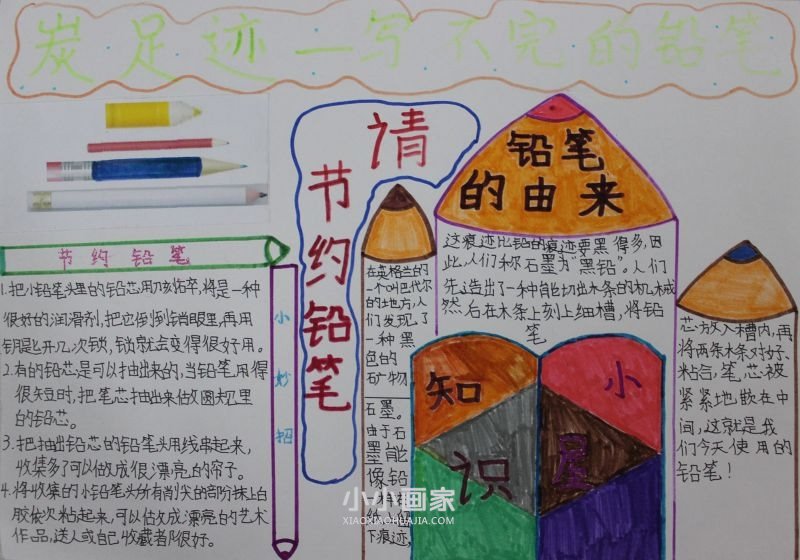 炭足迹—写不完的铅笔
请
节约铅笔
节约铅笔
小妙招
1.把小铅笔头里的铅芯,用刀刮
将是一种
很好的润滑剂,把它倒到锁眼里,再用
钥匙开几次锁,锁就会变得很好用。
2.有的铅芯是可以抽出来的,当铅笔用得
很短时,把笔芯抽出来做圆规里
的铅芯。
3.把抽出铅芯的铅笔头用线串起来,
收集多了可以做成很漂亮的帘子。
4.将收集的小铅笔头所有削尖的部分抹上白
胶依次粘起来,可以做成漂亮的艺术
作品,送人或自己收藏者都很好。
铅笔
的由来
在英格兰的
一个叫巴代尔
的地方,人
们发现了
一种黑
色的
矿物
石墨。
由于石
墨能
像铅
一样在
纸上留
下痕迹,
这痕迹比铅的痕迹要黑得多,因
此,人们称石墨为“黑铅”。人们
先造出了一种能切出木条的机械
然后在木条上刻上细槽,将铅
笔
芯放入槽内,再
将两条木条对好、
粘合,笔芯被
紧紧地嵌在中
间,这就是我
们今天使用的
铅笔!
知识
小星
小小画家
XIAOXIAOHUAJIA.COM